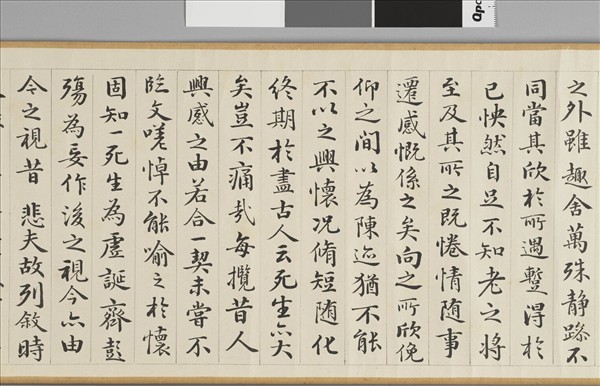 之外雖趣舍萬殊静躁不
同當其欣於所遇蹔得於
己怏然自足不知老之將
至及其所之既惓情随事
遷感慨係之矣向之所欣俛
仰之間以為陳迹猶不能
不以之興懷况脩短随化
終期於盡古人云死生亦大
矣豈不痛哉每攬昔人
興感之由若合一契未嘗不
臨文嗟悼不能喻之於懷
固知一死生為虛誕齊彭
殤為妄作後之視今亦由
今之視昔 悲夫故列敘時